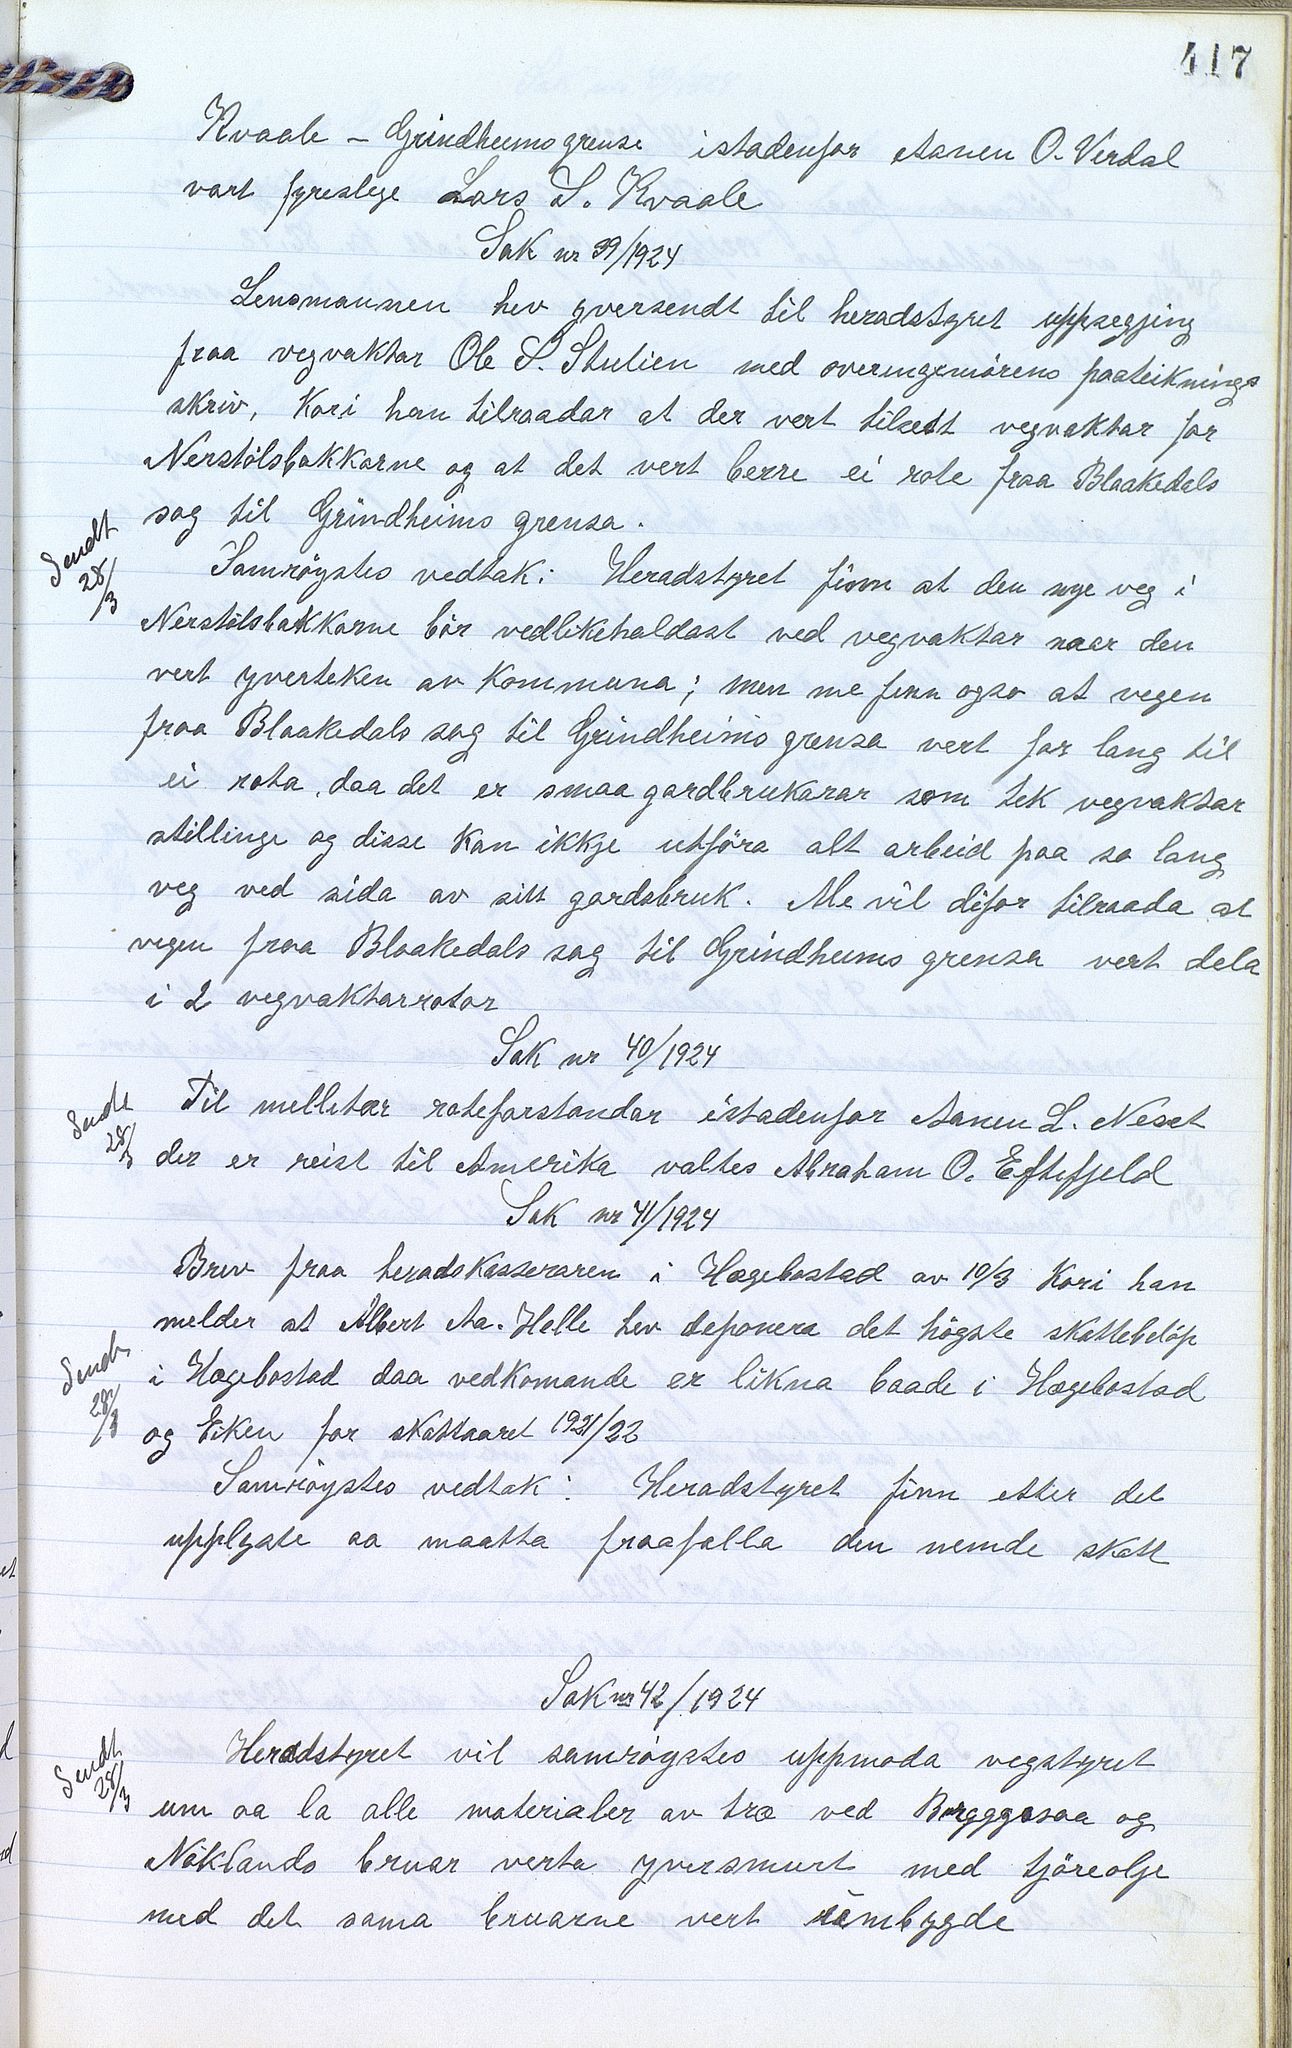 417
Kvaale - Grindheims grense istadenfor Aanen O. Verdal
vart fyreslege Lars S. Kvaale
Sak nr 39/1924
Lensmannen hev yversendt til heradstyret uppsegjing
fraa vegvaktar Ole S. Stulien med overingeniörens paateiknings
skriv, kori han tilraadar at der vert tilsett vegvaktar for
Nerstölsbakkarne og at det vert berre ei rote fraa Blaakedals
sag til Grindheims grensa.
Sendt
28/3
Samröystes vedtak: Heradstyret finn at den nye veg i
Nerstölsbakkarne bör vedlikehaldast ved vegvaktar naar den
vert yverteken av kommuna; men me finn ogso at vegen
fraa Blaakedals sag til Grindheims grensa vert for lang til
ei rota, daa det er smaa gardbrukarar som tek vegvaktar
stillinge og disse kan ikkje utföra alt arbeid paa so lang
veg ved sida av sitt gardsbruk. Me vil difor tilraada at
vegen fraa Blaakedals sag til Grindheims grensa vert dela
i 2 vegvaktarrotar
Sak nr 40/1924
Sendt
28/3
Til melletær roteforstandar istadenfor Aanen L. Neset
der er reist til Amerika valtes Abraham O. Eftefjeld
Sak nr 41/1924
Brev fraa heradskasseraren i Hægebostad av 10/3 kori han
melder at Albert Aa. Helle hev deponera det högste skattebelöp
Sendt
28/3
i Hægebostad daa vedkomande er likna baade i Hægebostad
og Eiken for skattaaret 1921/22
Samröystes vedtak: Heradstyret finn etter det
upplyste aa maatta fraafalla den nemde skatt
Sak nr 42/1924
Sendt
28/3
Heradstyret vil samröystes uppmoda vegstyret
um aa la alle materialer av træ ved og
Nöklands bruar verta yversmurt med tjöreolje
med det sama bruarne vert umbygde